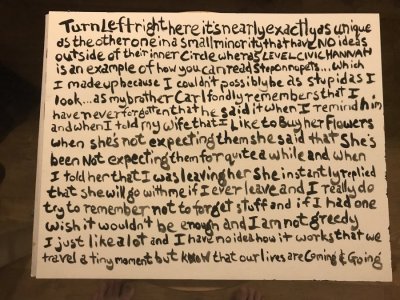 Turn Left right here it's nearly exactly as unique
as the other one in a small minority that have NO ideas
outside of their inner circle whereas LEVEL CIVIC HANNAH
is an example of how you can read step on no pets... which
I made up because I couldn't possibly be as stupid as I
look... as my brother Carl fondly remembers that I
have never forgotten that he said it when I remind him
and when I told my wife that I Like to Buy her Flowers
when she's not expecting them she said that she's
been Not expecting them for quite a while and when
I told her that I was leaving her she instantly replied
that she will go with me if I ever leave and I really do
try to remember not to forget stuff and if I had one
wish it wouldn't be enough and I am not greedy
I just like alot and I have no idea how it works that we
travel a tiny moment but know that our lives are Coming & Going